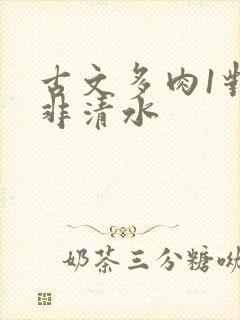 古文多肉1對
非清水
奶茶三分糖呦